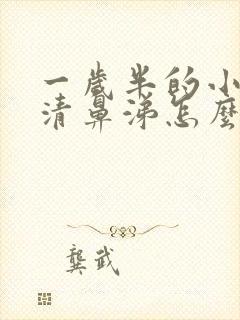 一歲半的小
清鼻涕怎麼
龔武